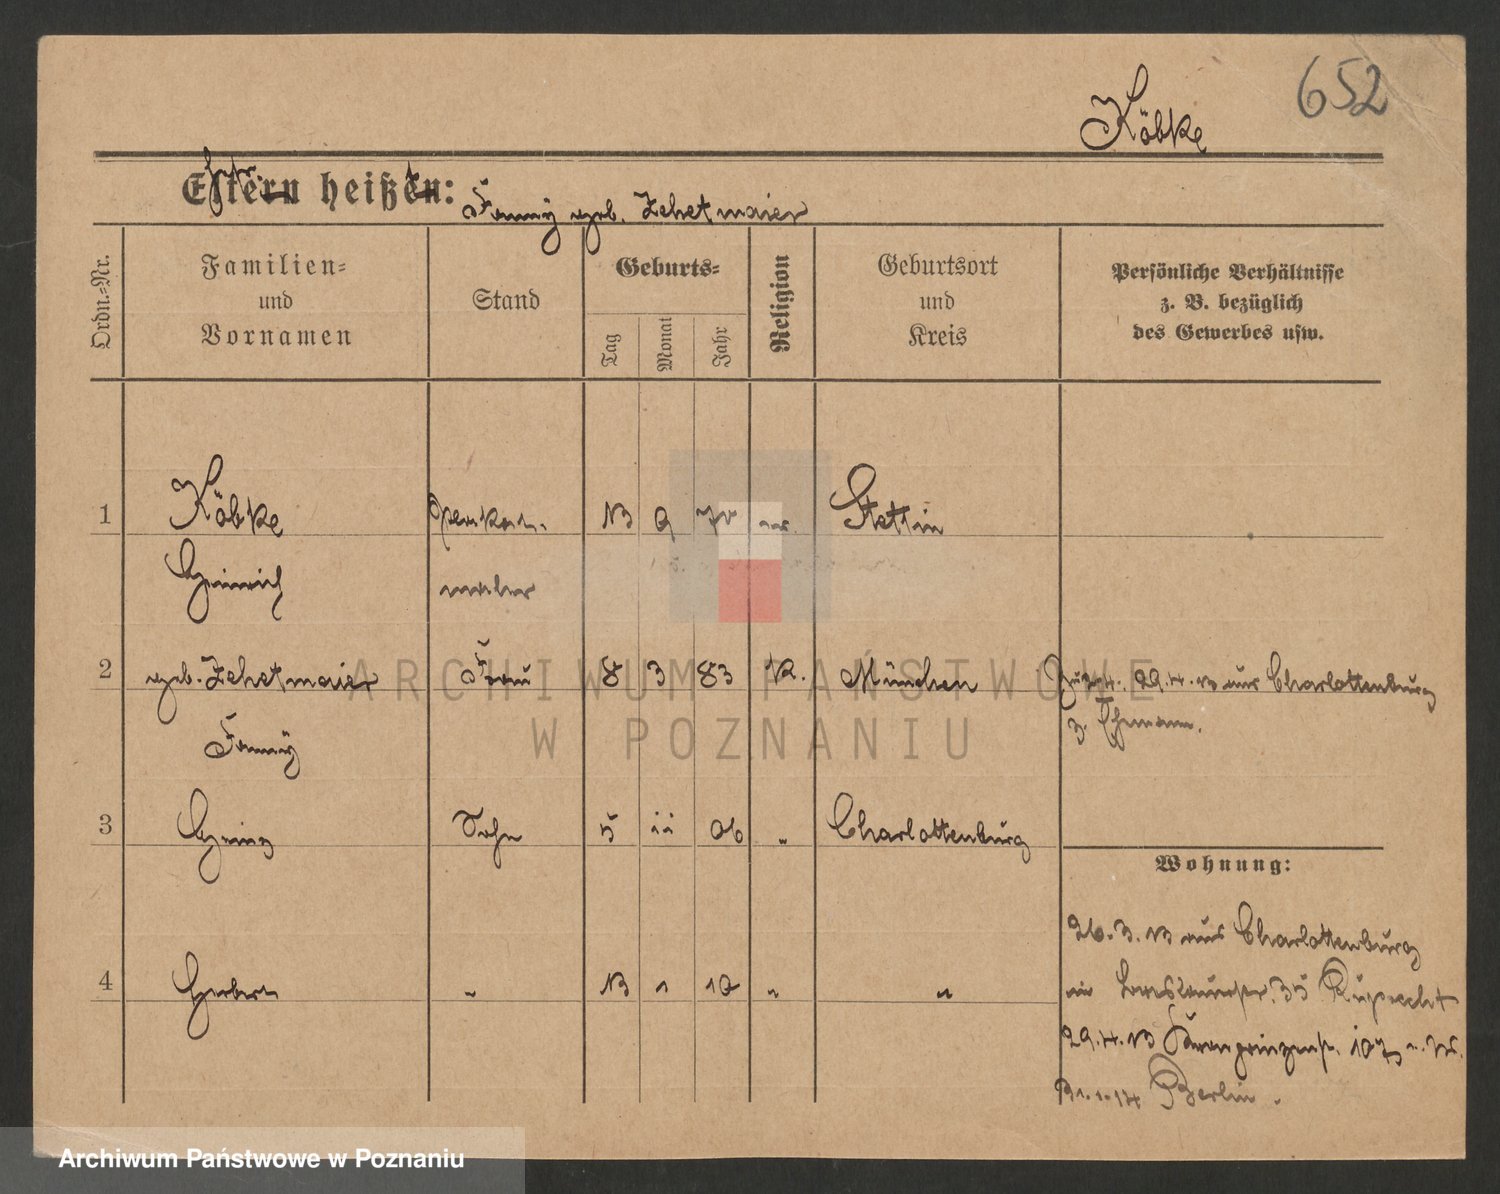 652
Köbke
Eltern heißen:
Fanny geb. Zehetmaier
Ordn.-Nr.
Familien-
und
Vornamen
Stand
Geburts-
Tag
Monat
Jahr
Religion
Geburtsort
und
Kreis
Persönliche Verhältnisse
z. B. bezüglich
des Gewerbes usw.
1 Köbke 13 9 70 ev. Stettin
Heinrich maler
2 geb. Zehetmaier Frau 8 3 83 K. München 29.4.13 aus Charlottenburg
Fanny z. Ehemann.
3 Heinz Sohn 5 11 06 „ Charlottenburg
Wohnung:
26.3.13 aus Charlottenburg
4 Herbert „ 13 1 10 „ „
in 35 Ruprecht
29.4.13 Kronprinzenstr. 107
31.1.14 Berlin.
ARCHIWUM PAŃSTWOWE
W POZNANIU
Archiwum Państwowe w Poznaniu